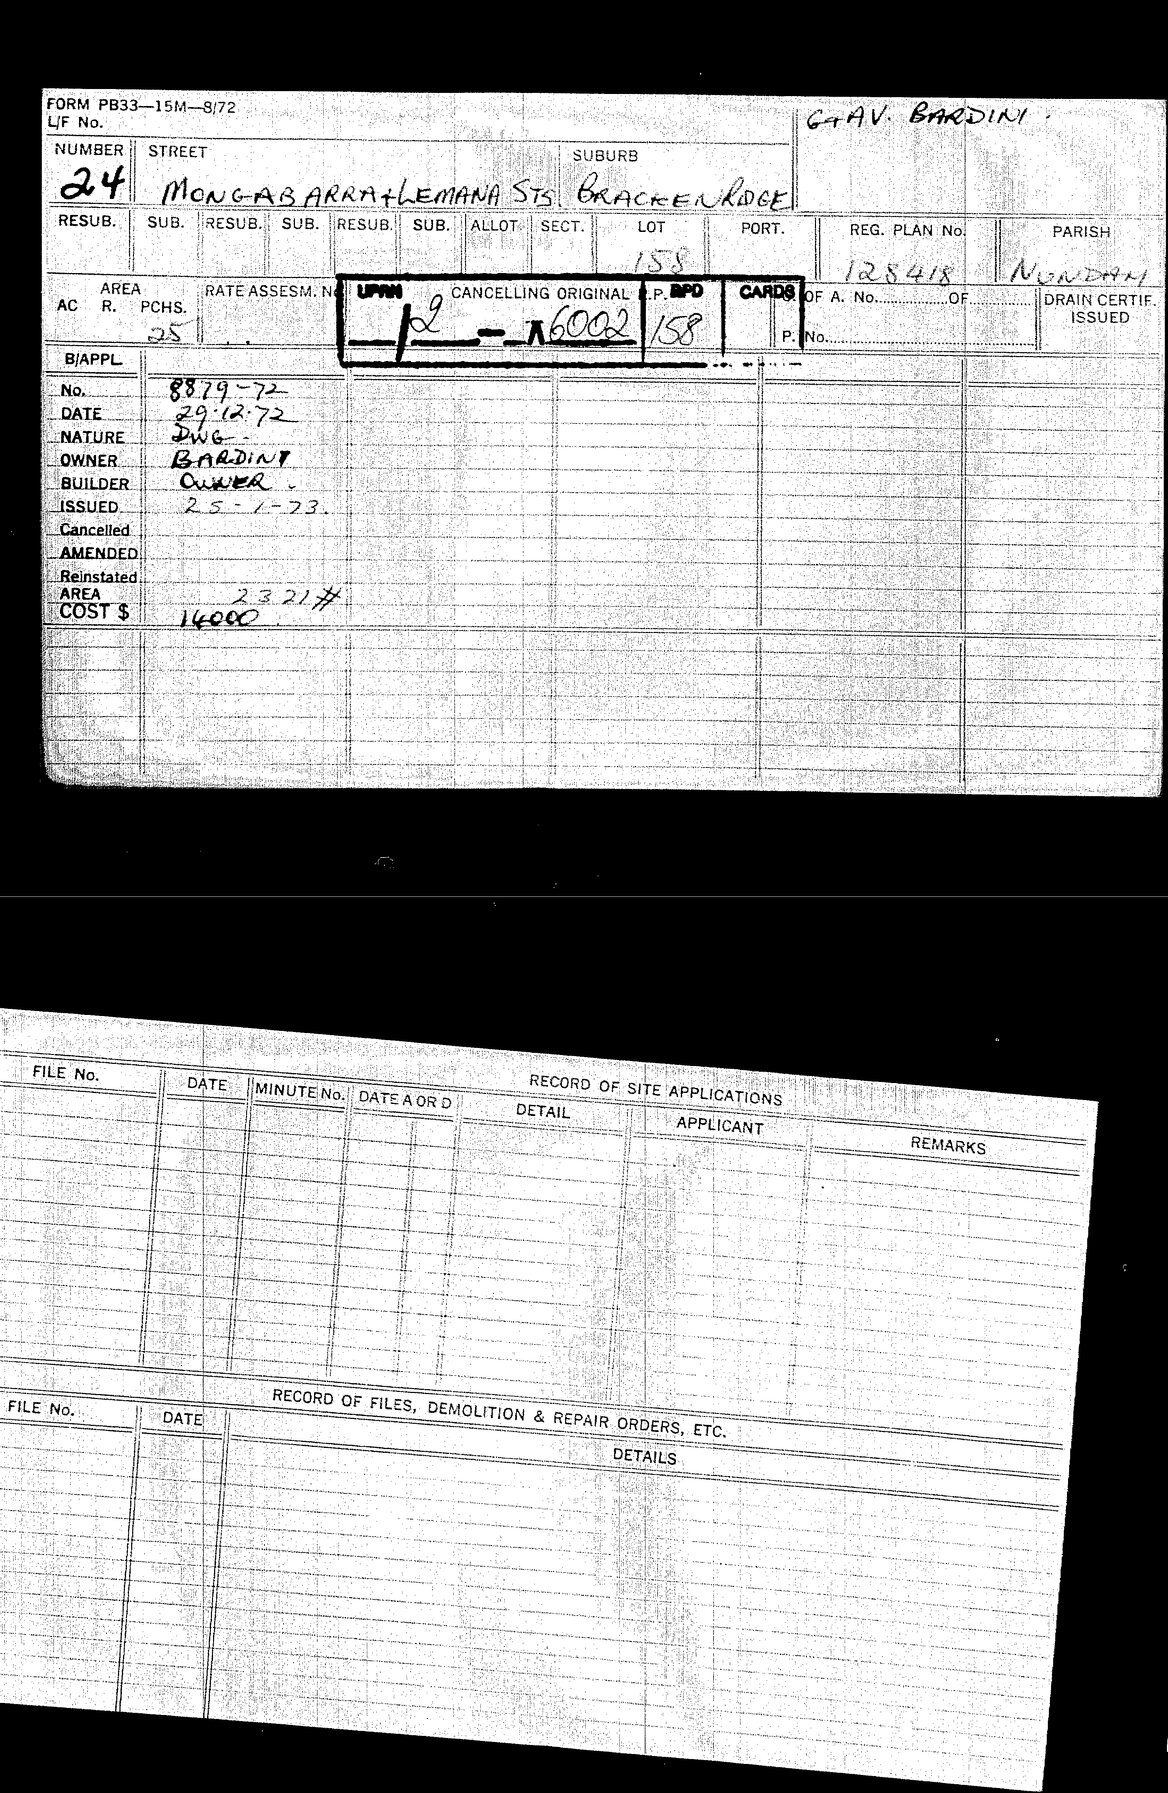 FORM PB33—15M—8/72
L/F No.
G+AV. BARDINI
NUMBER STREET SUBURB
24 MONGABARRA+LEMANA STS BRACKENRIDGE
RESUB. SUB. RESUB. SUB. RESUB. SUB. ALLOT. SECT. LOT PORT. REG. PLAN No. PARISH
158 128418 NUNDAH
AREA RATE ASSESM. No UPRN CANCELLING ORIGINAL .P. RPD CARDS OF A. No. OF DRAIN CERTIF. ISSUED
AC R. PCHS.
25 2 - 6002 158 P. No.
B/APPL.
No. 8879-72
DATE 29.12.72
NATURE DWG
OWNER BARDINI
BUILDER OWNER
ISSUED 25-1-73.
Cancelled
AMENDED
Reinstated
AREA 2321#
COST $ 14000
RECORD OF SITE APPLICATIONS
FILE No. DATE MINUTE No. DATE A OR D DETAIL APPLICANT REMARKS
RECORD OF FILES, DEMOLITION & REPAIR ORDERS, ETC.
FILE No. DATE DETAILS